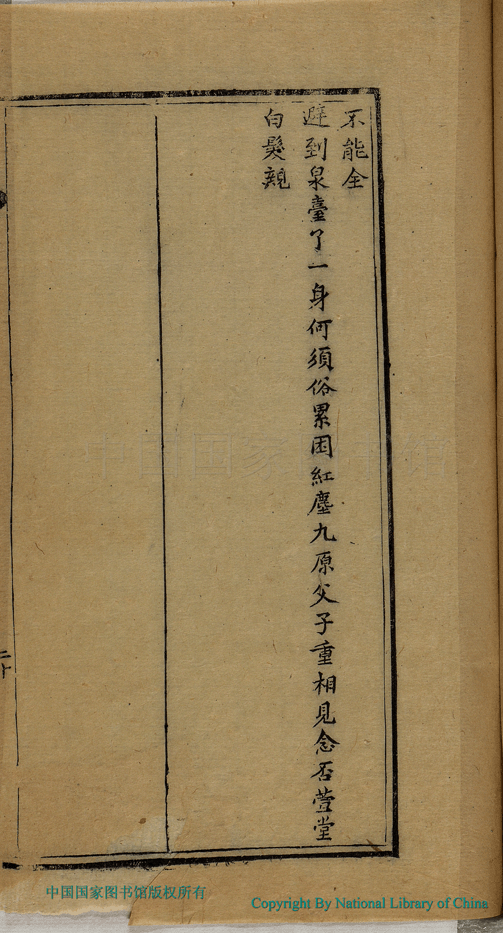 不能全
避到泉臺了一身何須俗累困紅塵九原父子重相見念否萱堂
白髮親
二十
中国国家图书馆
中国国家图书馆版权所有
Copyright By National Library of China